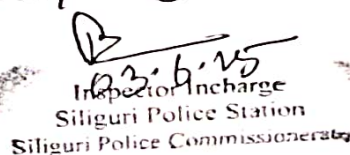 03.6.25
Inspector Incharge
Siliguri Police Station
Siliguri Police Commissionerate